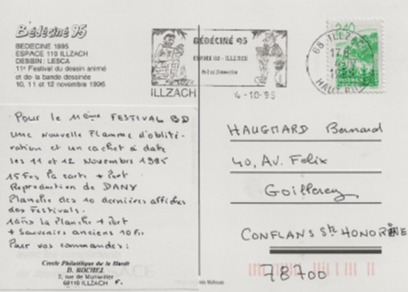 Bédéciné 95
BEDECINE 1995
ESPACE 110 ILLZACH
DESSIN : LESCA
11e Festival du dessin animé
et de la bande dessinée
10, 11 et 12 novembre 1995
BÉDÉCINÉ 95
ESPACE 110 - ILLZACH
ILLZACH
4-10-95
68 ILLZACH
HAUT RHIN
2,40
Pour le 11ème FESTIVAL BD
Une nouvelle Flamme d'oblité-
ration et un cachet à date
les 11 et 12 Novembre 1995
15 Frs la carte + Port
Reproduction de DANY
Planche des 10 dernières affiches
des Festivals:
la Planche + Port
+ Souvenirs anciens 10 Frs
Pour vos commandes:
Cercle Philatélique de la Hardt
B. ROCHEL
2, rue de Munwiller
68110 ILLZACH
HAUGMARD Bernard
40, AV. Felix
CONFLANS Ste HONORINE
78700